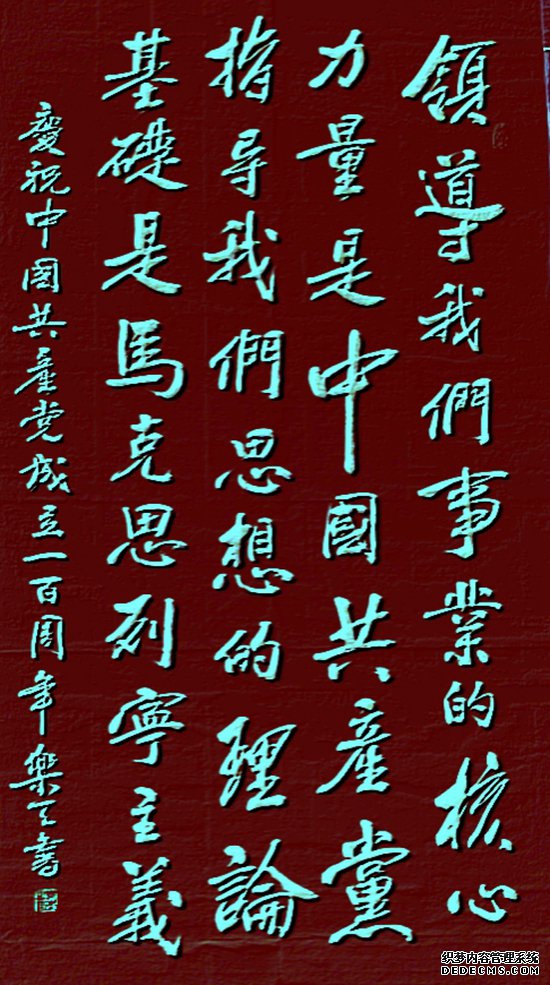 領導我們事業的核心
力量是中國共產黨
指导我們思想的理論
基礎是馬克思列寧主義
慶祝中國共產党成立一百周年樂天書
织梦内容管理系统
DEDECMS.COM